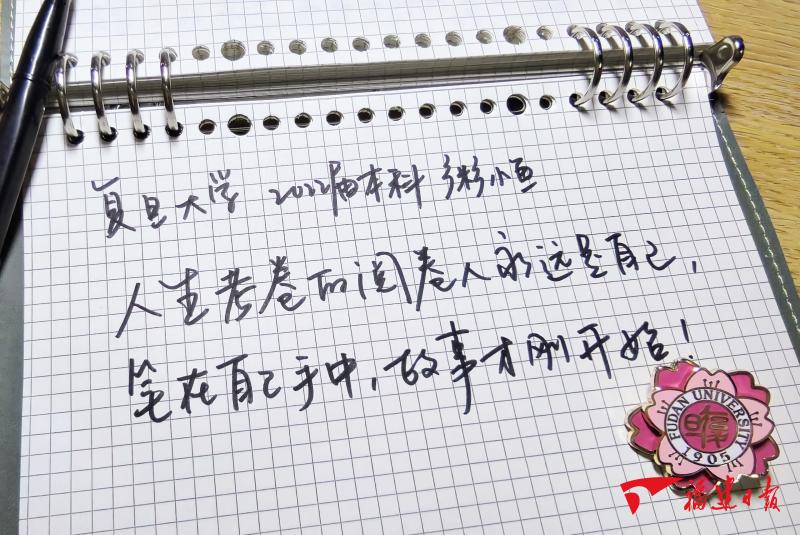 复旦大学 2022届本科
人生考卷的阅卷人永远是自己，
笔在自己手中，故事才刚开始！
FUDAN UNIVERSITY
1905
福建日报